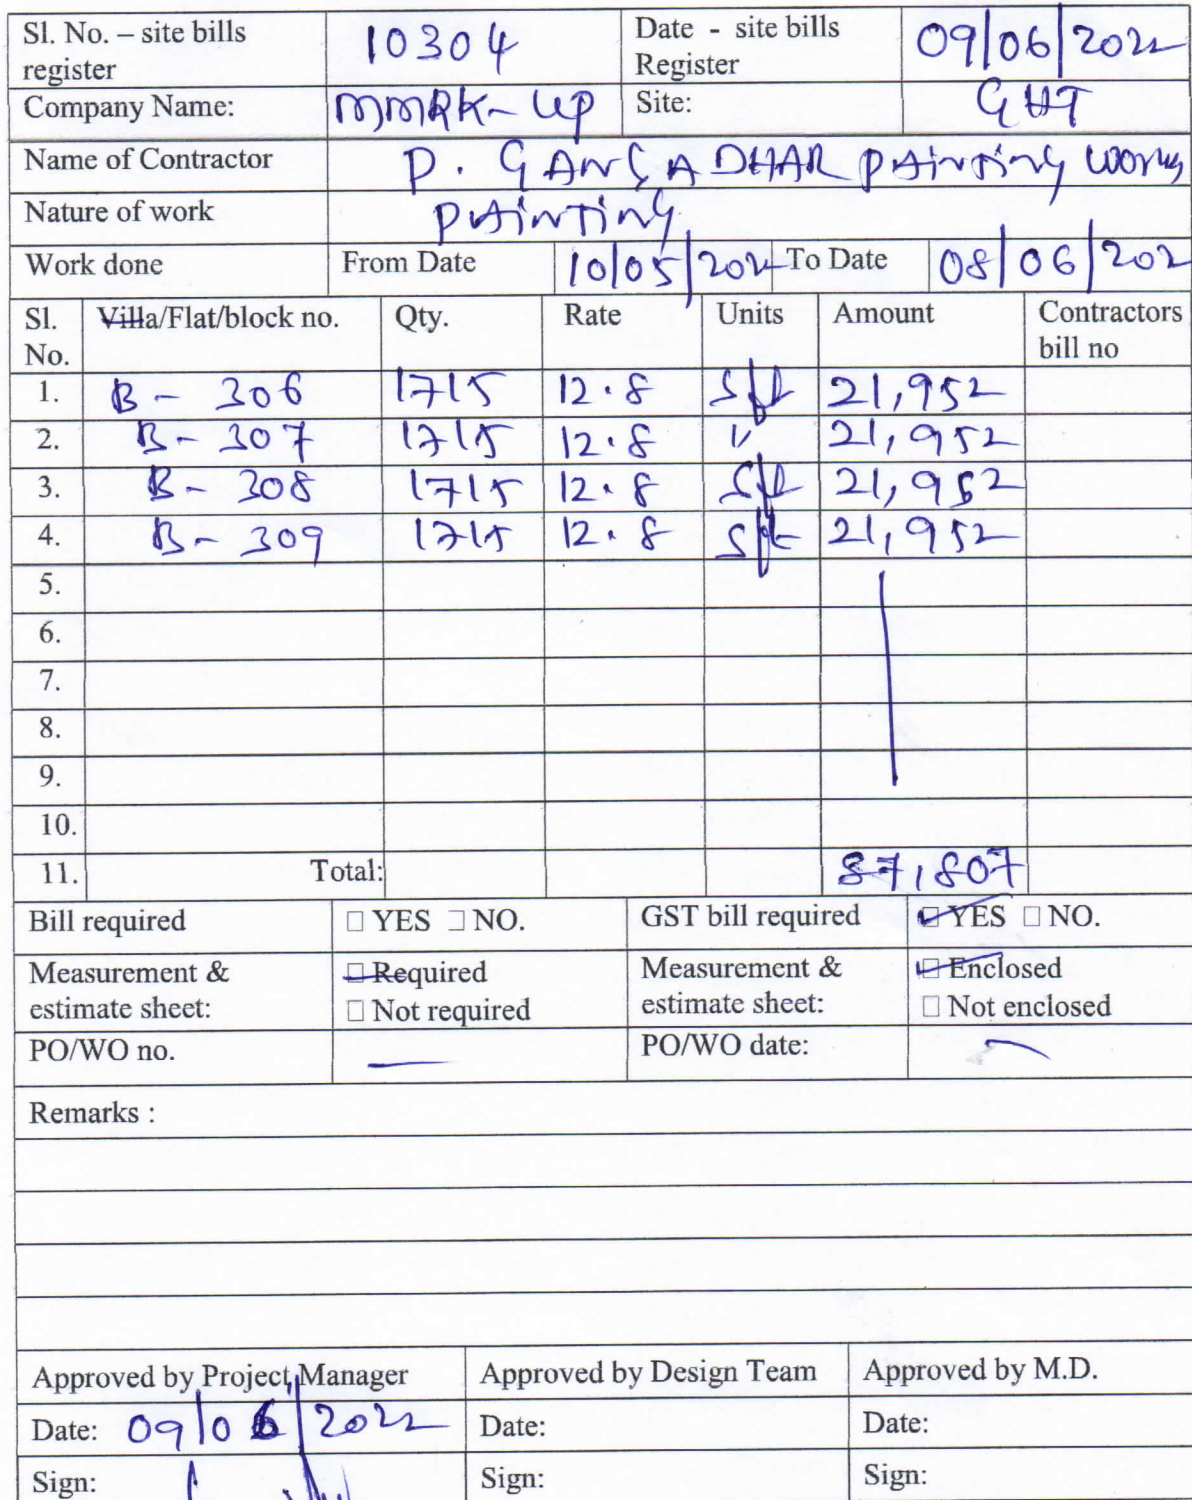 Sl. No. – site bills register 10304 Date - site bills Register 09/06/2022
Company Name: MMRK-UP Site: GHT
Name of Contractor P. GANGADHAR PAiNTiNG WORKS
Nature of work PAiNTiNG
Work done From Date 10/05/2022 To Date 08/06/202
Sl. No. Villa/Flat/block no. Qty. Rate Units Amount Contractors bill no
1. B - 306 1715 12.8 Sft 21,952
2. B - 307 1715 12.8 " 21,952
3. B - 308 1715 12.8 Sft 21,952
4. B - 309 1715 12.8 Sft 21,952
5.
6.
7.
8.
9.
10.
11. Total: 87,807
Bill required □ YES □ NO. GST bill required ☑ YES □ NO.
Measurement & estimate sheet: ☑ Required □ Not required Measurement & estimate sheet: ☑ Enclosed □ Not enclosed
PO/WO no. — PO/WO date: —
Remarks :
Approved by Project Manager Approved by Design Team Approved by M.D.
Date: 09/06/2022 Date: Date:
Sign: Sign: Sign: